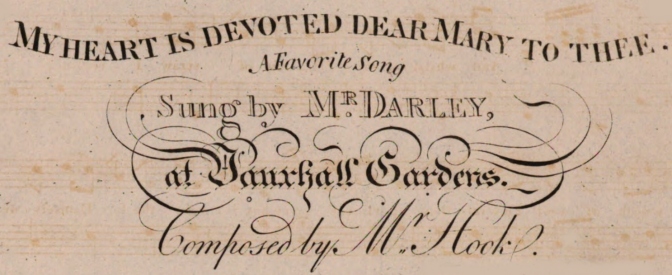 MY HEART IS DEVOTED DEAR MARY TO THEE.
A Favorite Song
Sung by MR. DARLEY,
at Vauxhall Gardens.
Composed by Mr. Hook.